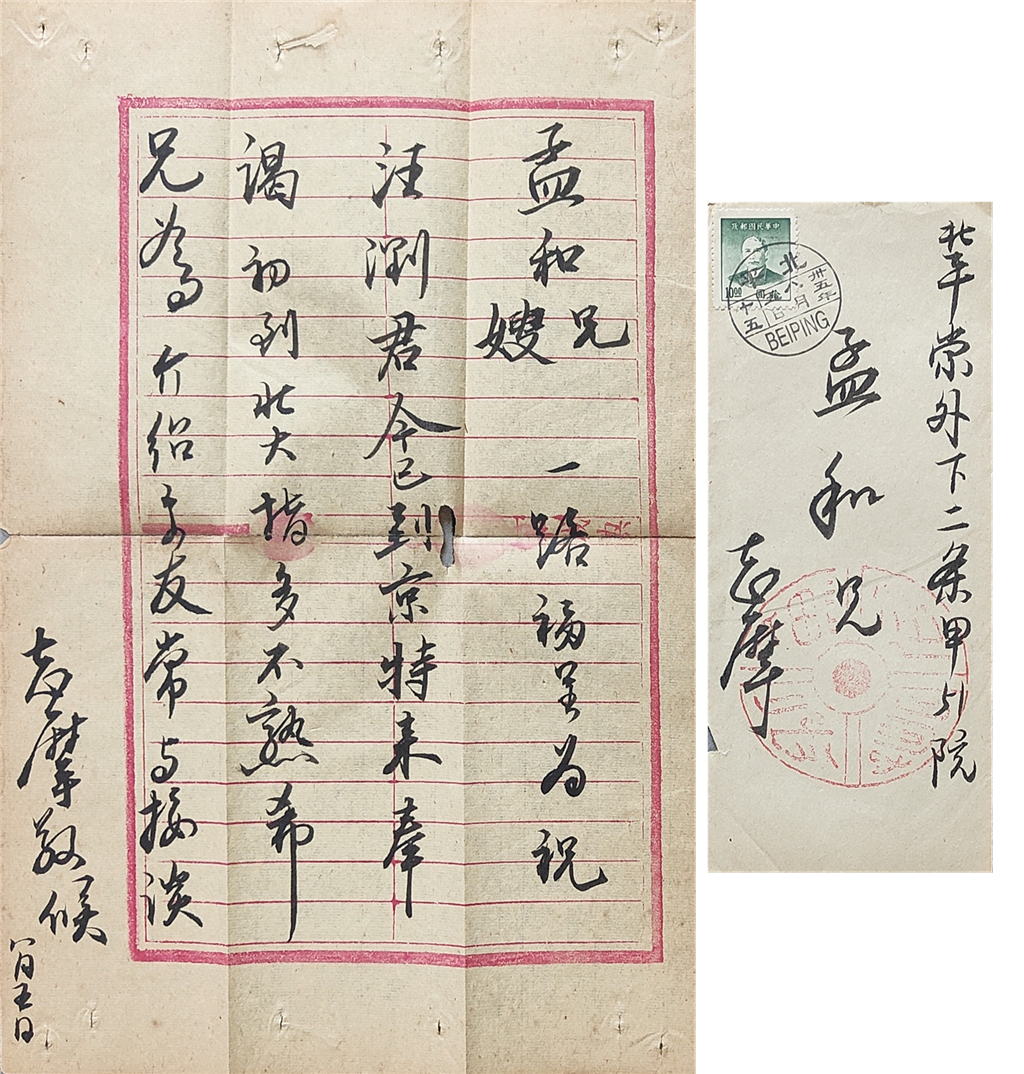 孟和兄
嫂一路福星为祝
汪浏君今已到京特来奉
谒初到北大指多不熟希
兄為介绍文友常与接谈
志摩敬候
八月五日
北平崇外下二条甲51院
孟和兄
志摩
中華民國郵政
10.00
北平
卅五年
八月
十五
BEIPING